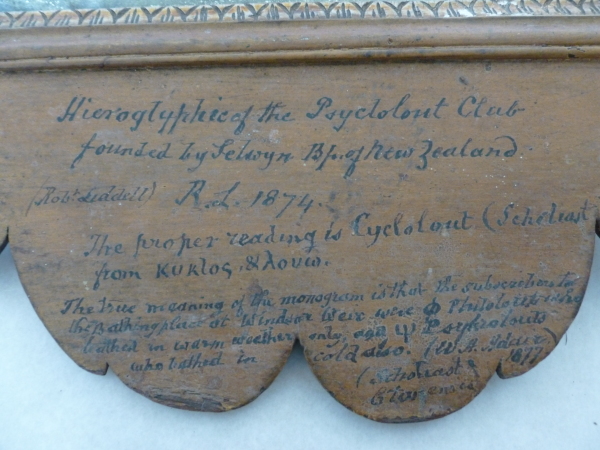 Hieroglyphic of the Psyclolout Club
founded by Selwyn Bp. of New Zealand.
(Robt. Liddell) R.L. 1874.
The proper reading is Cyclolout (Scholiast
from κυκλος, & λουω.
The true meaning of the monogram is that the subscribers to
the Bathing place at Windsor Weir were Φ Philolouts who
bathed in warm weather only, and Ψ Psykrolouts
who bathed in cold also. (W. A. Adair
1877
(Scholiast
Etonensis